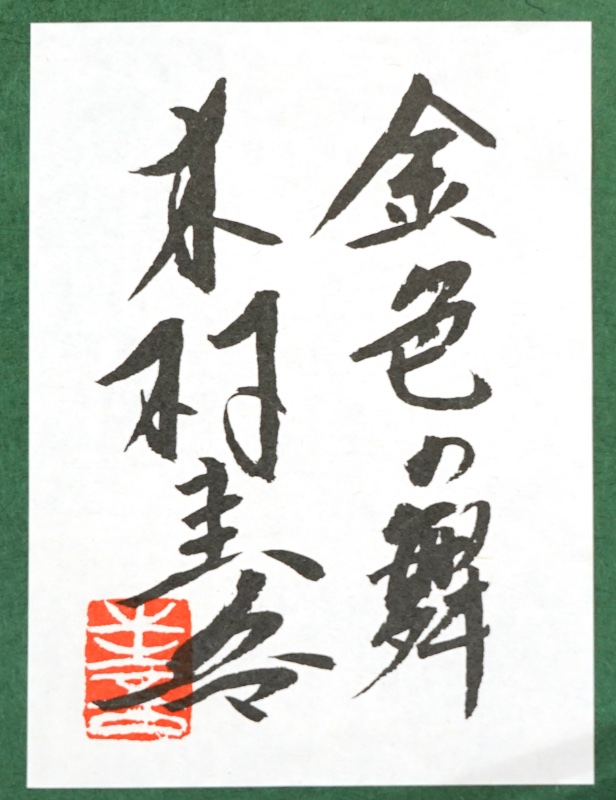 金色の舞
木村圭吾